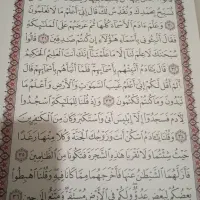 نُسَبِّحُ بِحَمْدِكَ وَنُقَدِّسُ لَكَ قَالَ إِنِّي أَعْلَمُ مَا لَا تَعْلَمُونَ
وَعَلَّمَ ءَادَمَ ٱلْأَسْمَآءَ كُلَّهَا ثُمَّ عَرَضَهُمْ عَلَى ٱلْمَلَٰٓئِكَةِ
فَقَالَ أَنۢبِـُٔونِي بِأَسْمَآءِ هَٰٓؤُلَآءِ إِن كُنتُمْ صَٰدِقِينَ ٣١ قَالُوا۟
سُبْحَٰنَكَ لَا عِلْمَ لَنَآ إِلَّا مَا عَلَّمْتَنَآ إِنَّكَ أَنتَ ٱلْعَلِيمُ ٱلْحَكِيمُ
٣٢ قَالَ يَٰٓـَٔادَمُ أَنۢبِئْهُم بِأَسْمَآئِهِمْ فَلَمَّآ أَنۢبَأَهُم بِأَسْمَآئِهِمْ قَالَ
أَلَمْ أَقُل لَّكُمْ إِنِّيٓ أَعْلَمُ غَيْبَ ٱلسَّمَٰوَٰتِ وَٱلْأَرْضِ وَأَعْلَمُ مَا
تُبْدُونَ وَمَا كُنتُمْ تَكْتُمُونَ ٣٣ وَإِذْ قُلْنَا لِلْمَلَٰٓئِكَةِ ٱسْجُدُوا۟
لِءَادَمَ فَسَجَدُوٓا۟ إِلَّآ إِبْلِيسَ أَبَىٰ وَٱسْتَكْبَرَ وَكَانَ مِنَ ٱلْكَٰفِرِينَ
٣٤ وَقُلْنَا يَٰٓـَٔادَمُ ٱسْكُنْ أَنتَ وَزَوْجُكَ ٱلْجَنَّةَ وَكُلَا مِنْهَا رَغَدًا
حَيْثُ شِئْتُمَا وَلَا تَقْرَبَا هَٰذِهِ ٱلشَّجَرَةَ فَتَكُونَا مِنَ ٱلظَّٰلِمِينَ ٣٥
فَأَزَلَّهُمَا ٱلشَّيْطَٰنُ عَنْهَا فَأَخْرَجَهُمَا مِمَّا كَانَا فِيهِ وَقُلْنَا ٱهْبِطُوا۟
بَعْضُكُمْ لِبَعْضٍ عَدُوٌّ وَلَكُمْ فِي ٱلْأَرْضِ مُسْتَقَرٌّ